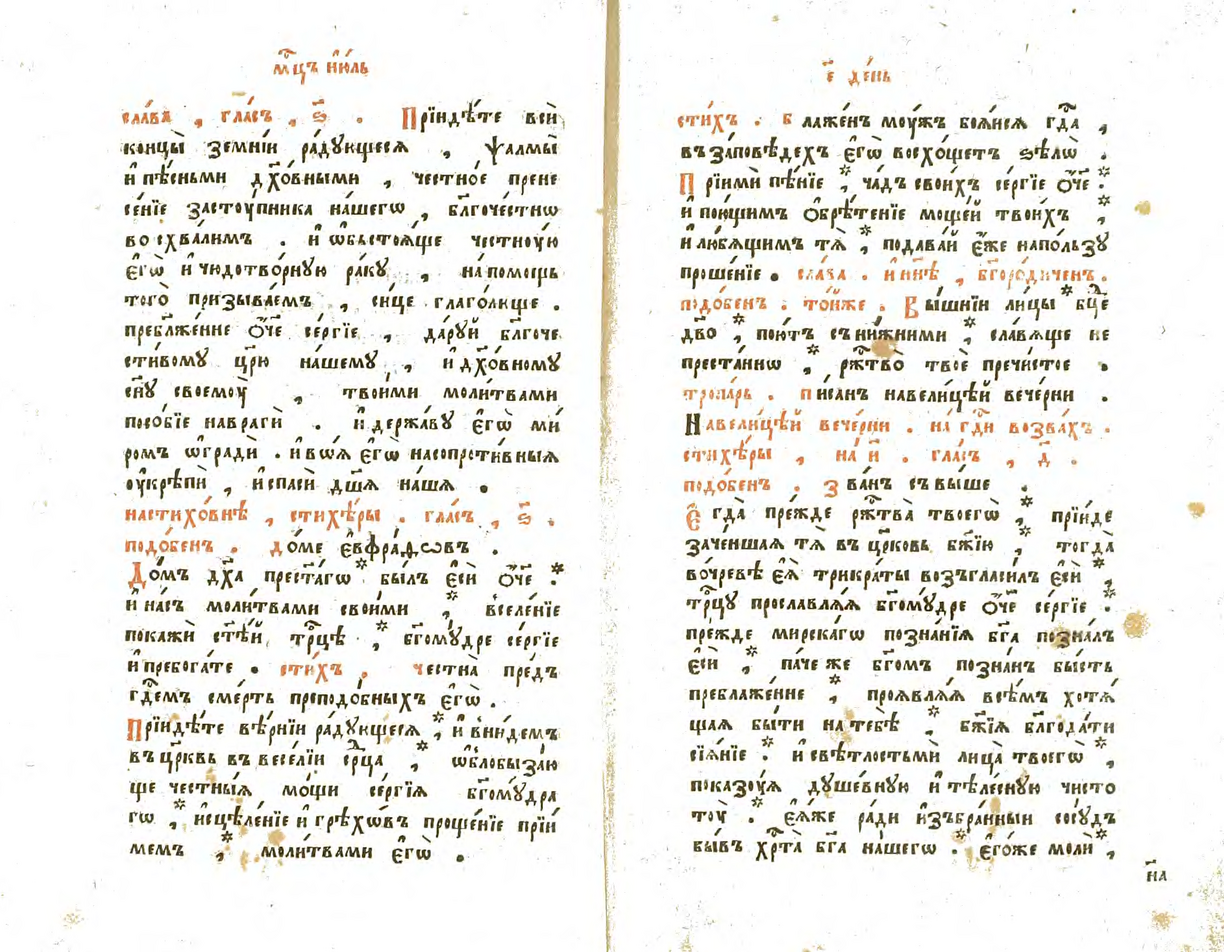 мⷭ҇цъ і҆ю́ль
сла́ва , гла́съ , ѕ҃ . Прїидѣ́те всѝ
концы̀ земні́и ра́дꙋющеся , ѱалмы̀
и҆ пѣ́сньми дх҃о́вными , че́стное прене
се́нїе засто́упника на́шегѡ , бл҃гоче́стнѡ
восхва́лимъ . и҆ ѡ҆бьстоѧ́ще честноу́ю
є҆гѡ̀ и҆ чюдотво́рнꙋю ра́кꙋ , на́ помощь
того̀ призыва́емъ , си́це глаго́люще .
пребл҃же́нне ѻ҆́ч҃е се́ргїе , да́рꙋй бл҃гоче
сти́вомꙋ цр҃ю̀ на́шемꙋ , и҆ дх҃о́вномꙋ
сн҃ꙋ своемоу̀ , твои́ми моли́твами
посо́бїе на врагѝ . и҆ держа́вꙋ є҆гѡ̀ ми
ромъ ѡ҆градѝ . и҆ воѧ̀ є҆гѡ̀ на сопроти́вныѧ
оу҆крѣпѝ , и҆ спасѝ дш҃ѧ на́шѧ .
на стихо́внѣ , стихѣ́ры . гла́съ , ѕ҃ .
подо́бенъ . до́ме є҆вфра́ѳѡвъ .
До́мъ дх҃а прест҃а́гѡ * бы́лъ є҆сѝ ѻ҆́ч҃е .*
и҆ на́съ моли́твами свои́ми ,* вселе́нїе
покажѝ ст҃ѣ́й тро́цѣ ,* бг҃омꙋ́дре се́ргїе
и҆ пребога́те . сти́хъ . честна̀ пре́дъ
гдⷭ҇емъ сме́рть преподо́бныхъ є҆гѡ̀ .
Прїидѣ́те вѣ́рнїи ра́дꙋющеся ,* и҆ вни́демъ
въ цр҃квь въ весе́лїи ср҃ца ,* ѡ҆блобыза́ю
ще че́стныѧ мо́щи се́ргїѧ бг҃омꙋ́дра
гѡ ,* и҆сцѣле́нїе и҆ грѣхо́въ проще́нїе прїи́
мемъ ,* моли́твами є҆гѡ̀ .
є҃ де́нь
сти́хъ . Блаже́нъ моу́жъ боѧ́исѧ гдⷭ҇а ,
въ за́повѣдехъ є҆гѡ̀ восхо́щетъ ѕѣлѡ̀ .
Прїимѝ пѣ́нїе ,* ча́дъ свои́хъ се́ргїе ѻ҆́ч҃е .*
и҆ пою́щимъ ѻ҆брѣ́тенїе моще́й твои́хъ ,*
и҆ лю́бѧщимъ тѧ̀ ,* пода́вай є҆́же на по́льзꙋ
проше́нїе . сла́ва . и҆ ны́нѣ , бг҃оро́диченъ .
подо́бенъ . то́йже . Вы́шнїи ли́цы * бц҃е
дв҃о ,* пою́тъ съ ни́жними ,* сла́вѧще не
преста́ннѡ ,* ржⷭ҇тво̀ твоѐ пречи́стое .
тропа́рь . пи́санъ на вели́цѣй вече́рни .
На вели́цѣй вече́рни . на́ гдⷭ҇и воззва́хъ .
стихѣ́ры , на́ и҃ . гла́съ , д҃ .
подо́бенъ . Зва́нъ съ вы́ше .
Є҆гда̀ пре́жде ржⷭ҇тва̀ твоегѡ̀ ,* прїи́де
заче́ншая тѧ̀ въ цр҃ковь бж҃їю ,* тогда̀
во чре́вѣ є҆ѧ̀ трикра́ты возъгласи́лъ є҆сѝ ,*
трⷪ҇цꙋ прославлѧ́ѧ бг҃омꙋ́дре ѻ҆́ч҃е се́ргїе .*
пре́жде мирска́гѡ позна́нїѧ бг҃а позна́лъ
є҆сѝ ,* па́че же бг҃омъ позна́нъ бы́сть
преблаже́нне ,* проѧвлѧ́ѧ всѣ́мъ хотѧ́
щаѧ бы́ти на тебѣ̀ ,* бж҃їѧ бл҃года́ти
сїѧ́нїе .* и҆ свѣ́тлостьмѝ лица̀ твоегѡ̀ ,*
показоу́ѧ душе́вную и҆ тѣле́сную чисто
тоу̀ .* є҆ѧ́же ра́ди и҆збра́нныи сосꙋ́дъ
бы́въ хр҃та̀ бг҃а на́шегѡ .* є҆го́же молѝ ,*
на